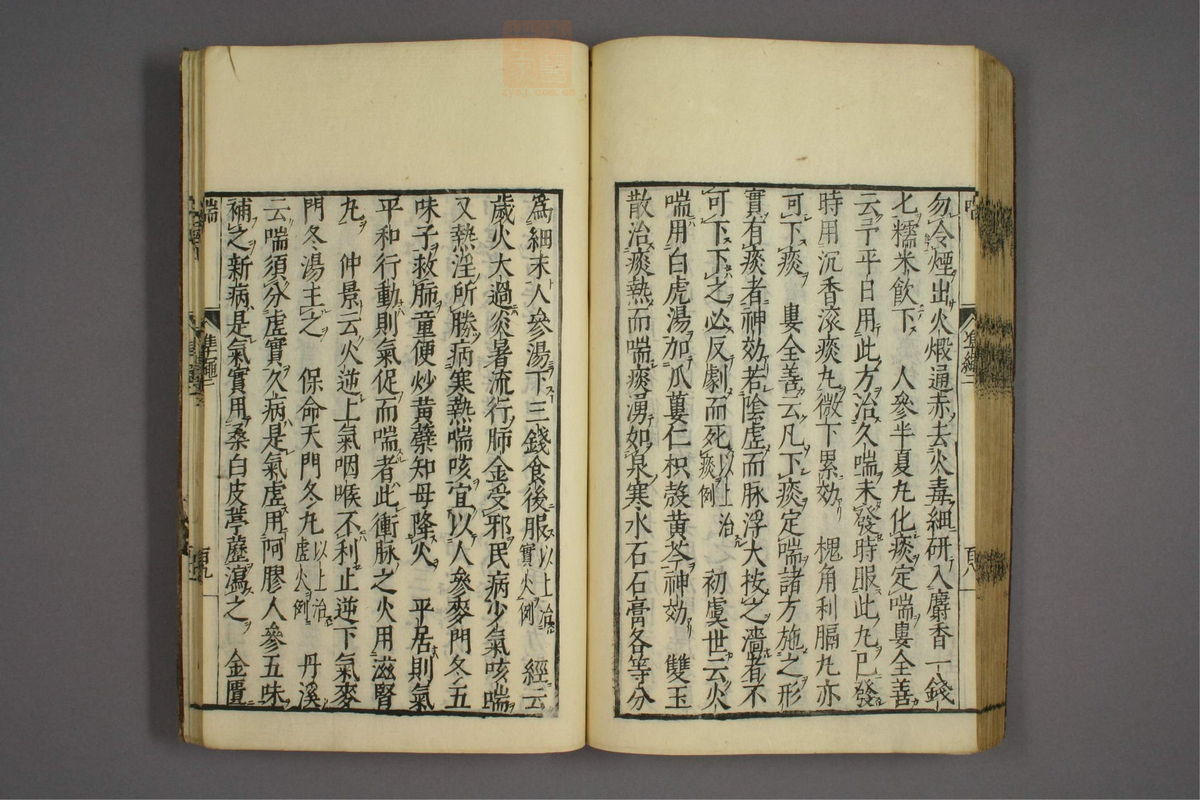 勿令煙出火煅通赤去火毒細研入麝香一錢
七糯米飲下　人參半夏丸化痰定喘婁全善
云予平日用此方治久喘未發時服此丸已發
時用沉香滾痰丸微下累効　槐角利膈丸亦
可下痰　婁全善云凡下痰定喘諸方施之形
實有痰者神効若陰虛而脉浮大按之濇者不
可下下之必反劇而死以上治痰例　初虞世云火
喘用白虎湯加瓜蔞仁枳殼黃芩神効　雙玉
散治痰熱而喘痰湧如泉寒水石石膏各等分
爲細末人參湯下三錢食後服以上治實火例　經云
歲火太過炎暑流行肺金受邪民病少氣咳喘
又熱淫所勝病寒熱喘咳宜以人參麥門冬五
味子救肺童便炒黃蘗知母降火　平居則氣
平和行動則氣促而喘者此衝脉之火用滋腎
丸　仲景云火逆上氣咽喉不利止逆下氣麥
門冬湯主之　保命天門冬丸以上治虛火例　丹溪
云喘須分虛實久病是氣虛用阿膠人參五味
補之新病是氣實用桑白皮葶藶瀉之　金匱
喘　準繩二